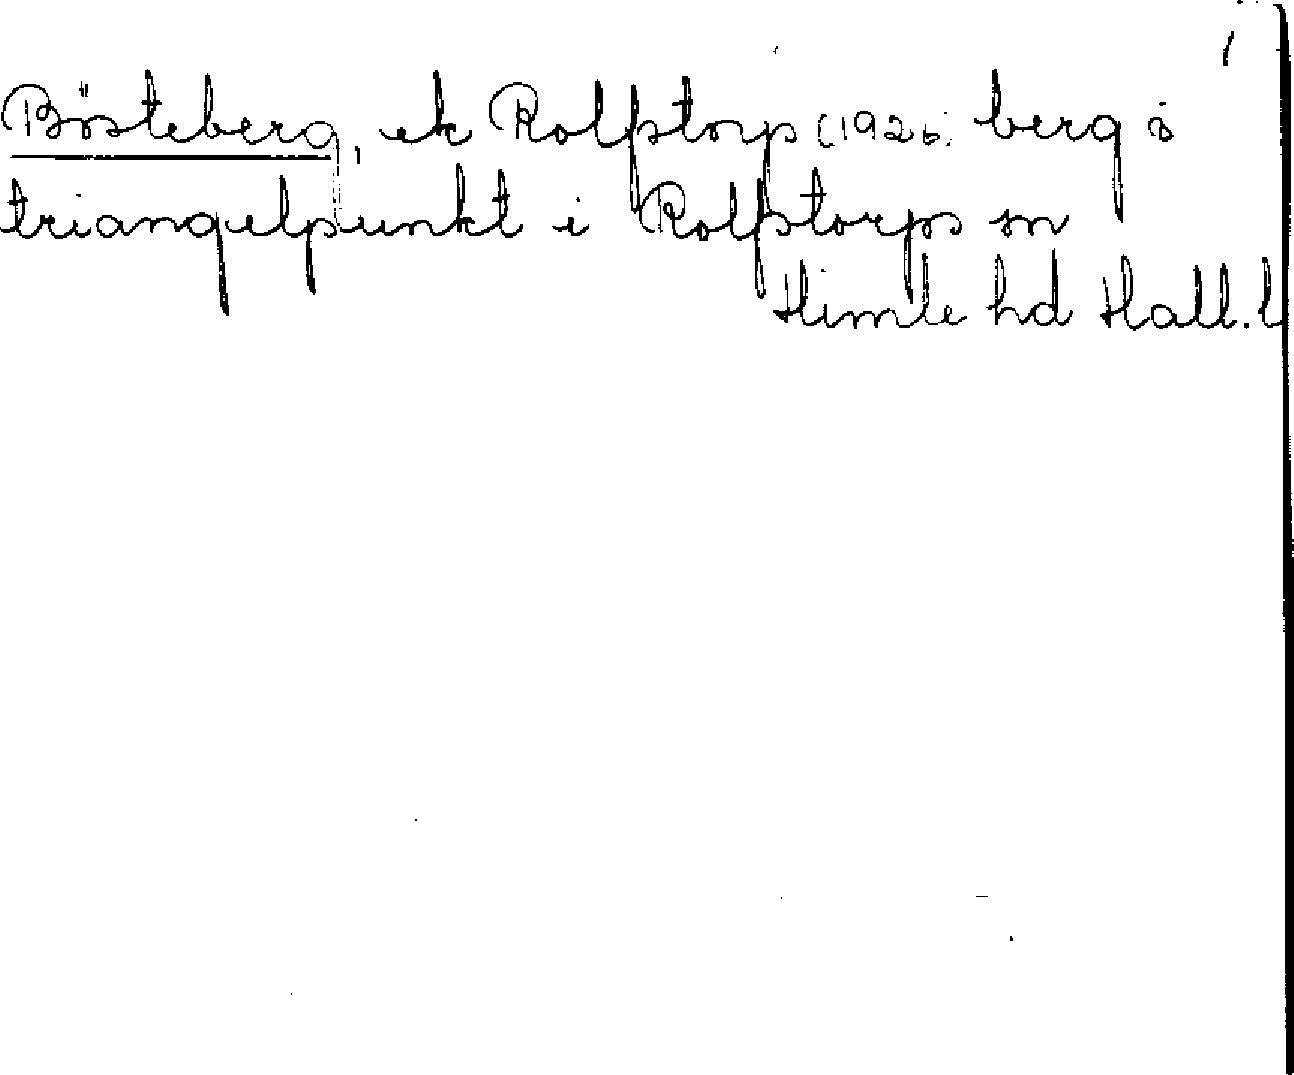 Bösteberg, ek Rolfstorp (1926) berg o
triangelpunkt i Rolfstorps sn
Himle hd Hall. l